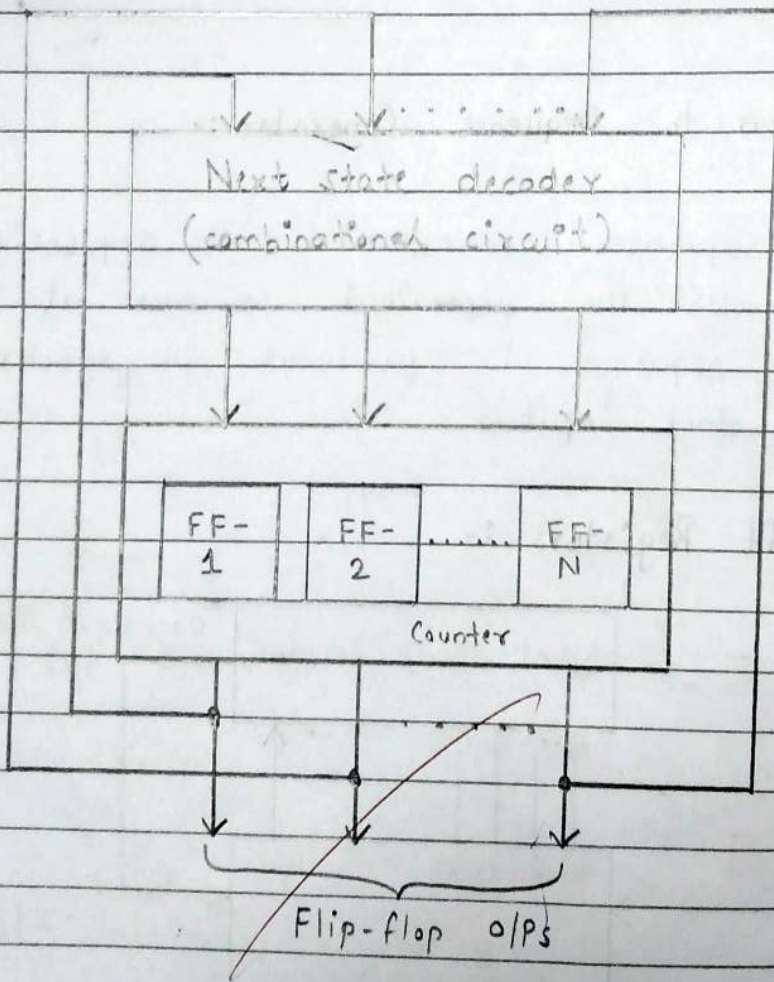 Next state decoder
(combinational circuit)
FF-
1
FF-
2
......
FF-
N
Counter
.....
Flip-flop O/Ps